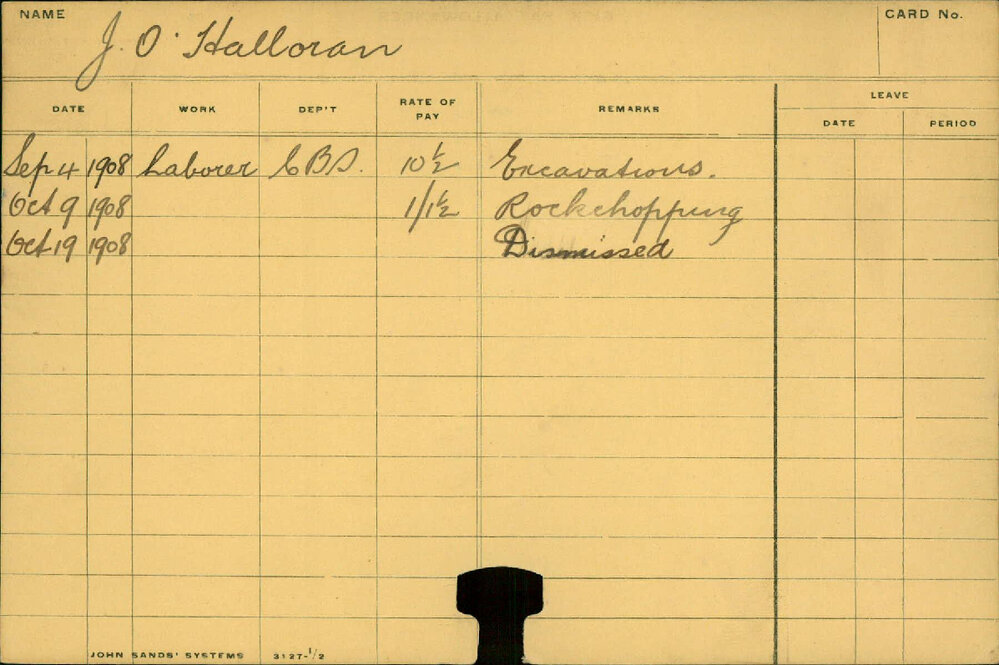 NAME
CARD No.
J. O'Halloran
LEAVE
DATE WORK DEP'T RATE OF PAY REMARKS DATE PERIOD
Sep 4 1908 Laborer C B S. 10 1/2 Excavations.
Oct 9 1908 1/1 1/2 Rockchopping
Oct 19 1908 Dismissed
JOHN SANDS' SYSTEMS 3127-1/2